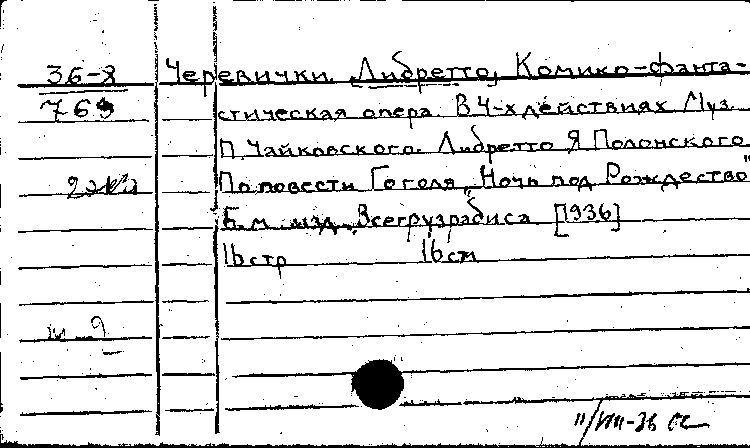 36-8
769
2 экз
Черевички. Либретто, Комико-фанта-
стическая опера. В 4-х действиях Муз.
П. Чайковского. Либретто Я Полонского
По повести Гоголя „Ночь под Рождество"
Б.м. изд. Всегрузрабиса [1936]
16 стр 16 см
11/VIII-36